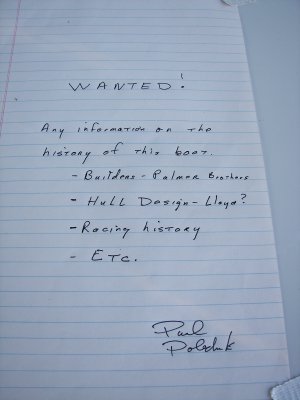 WANTED!
Any information on the
history of this boat.
- Builders - Palmer Brothers
- Hull Design - Lloyd?
- Racing history
- Etc.
Paul